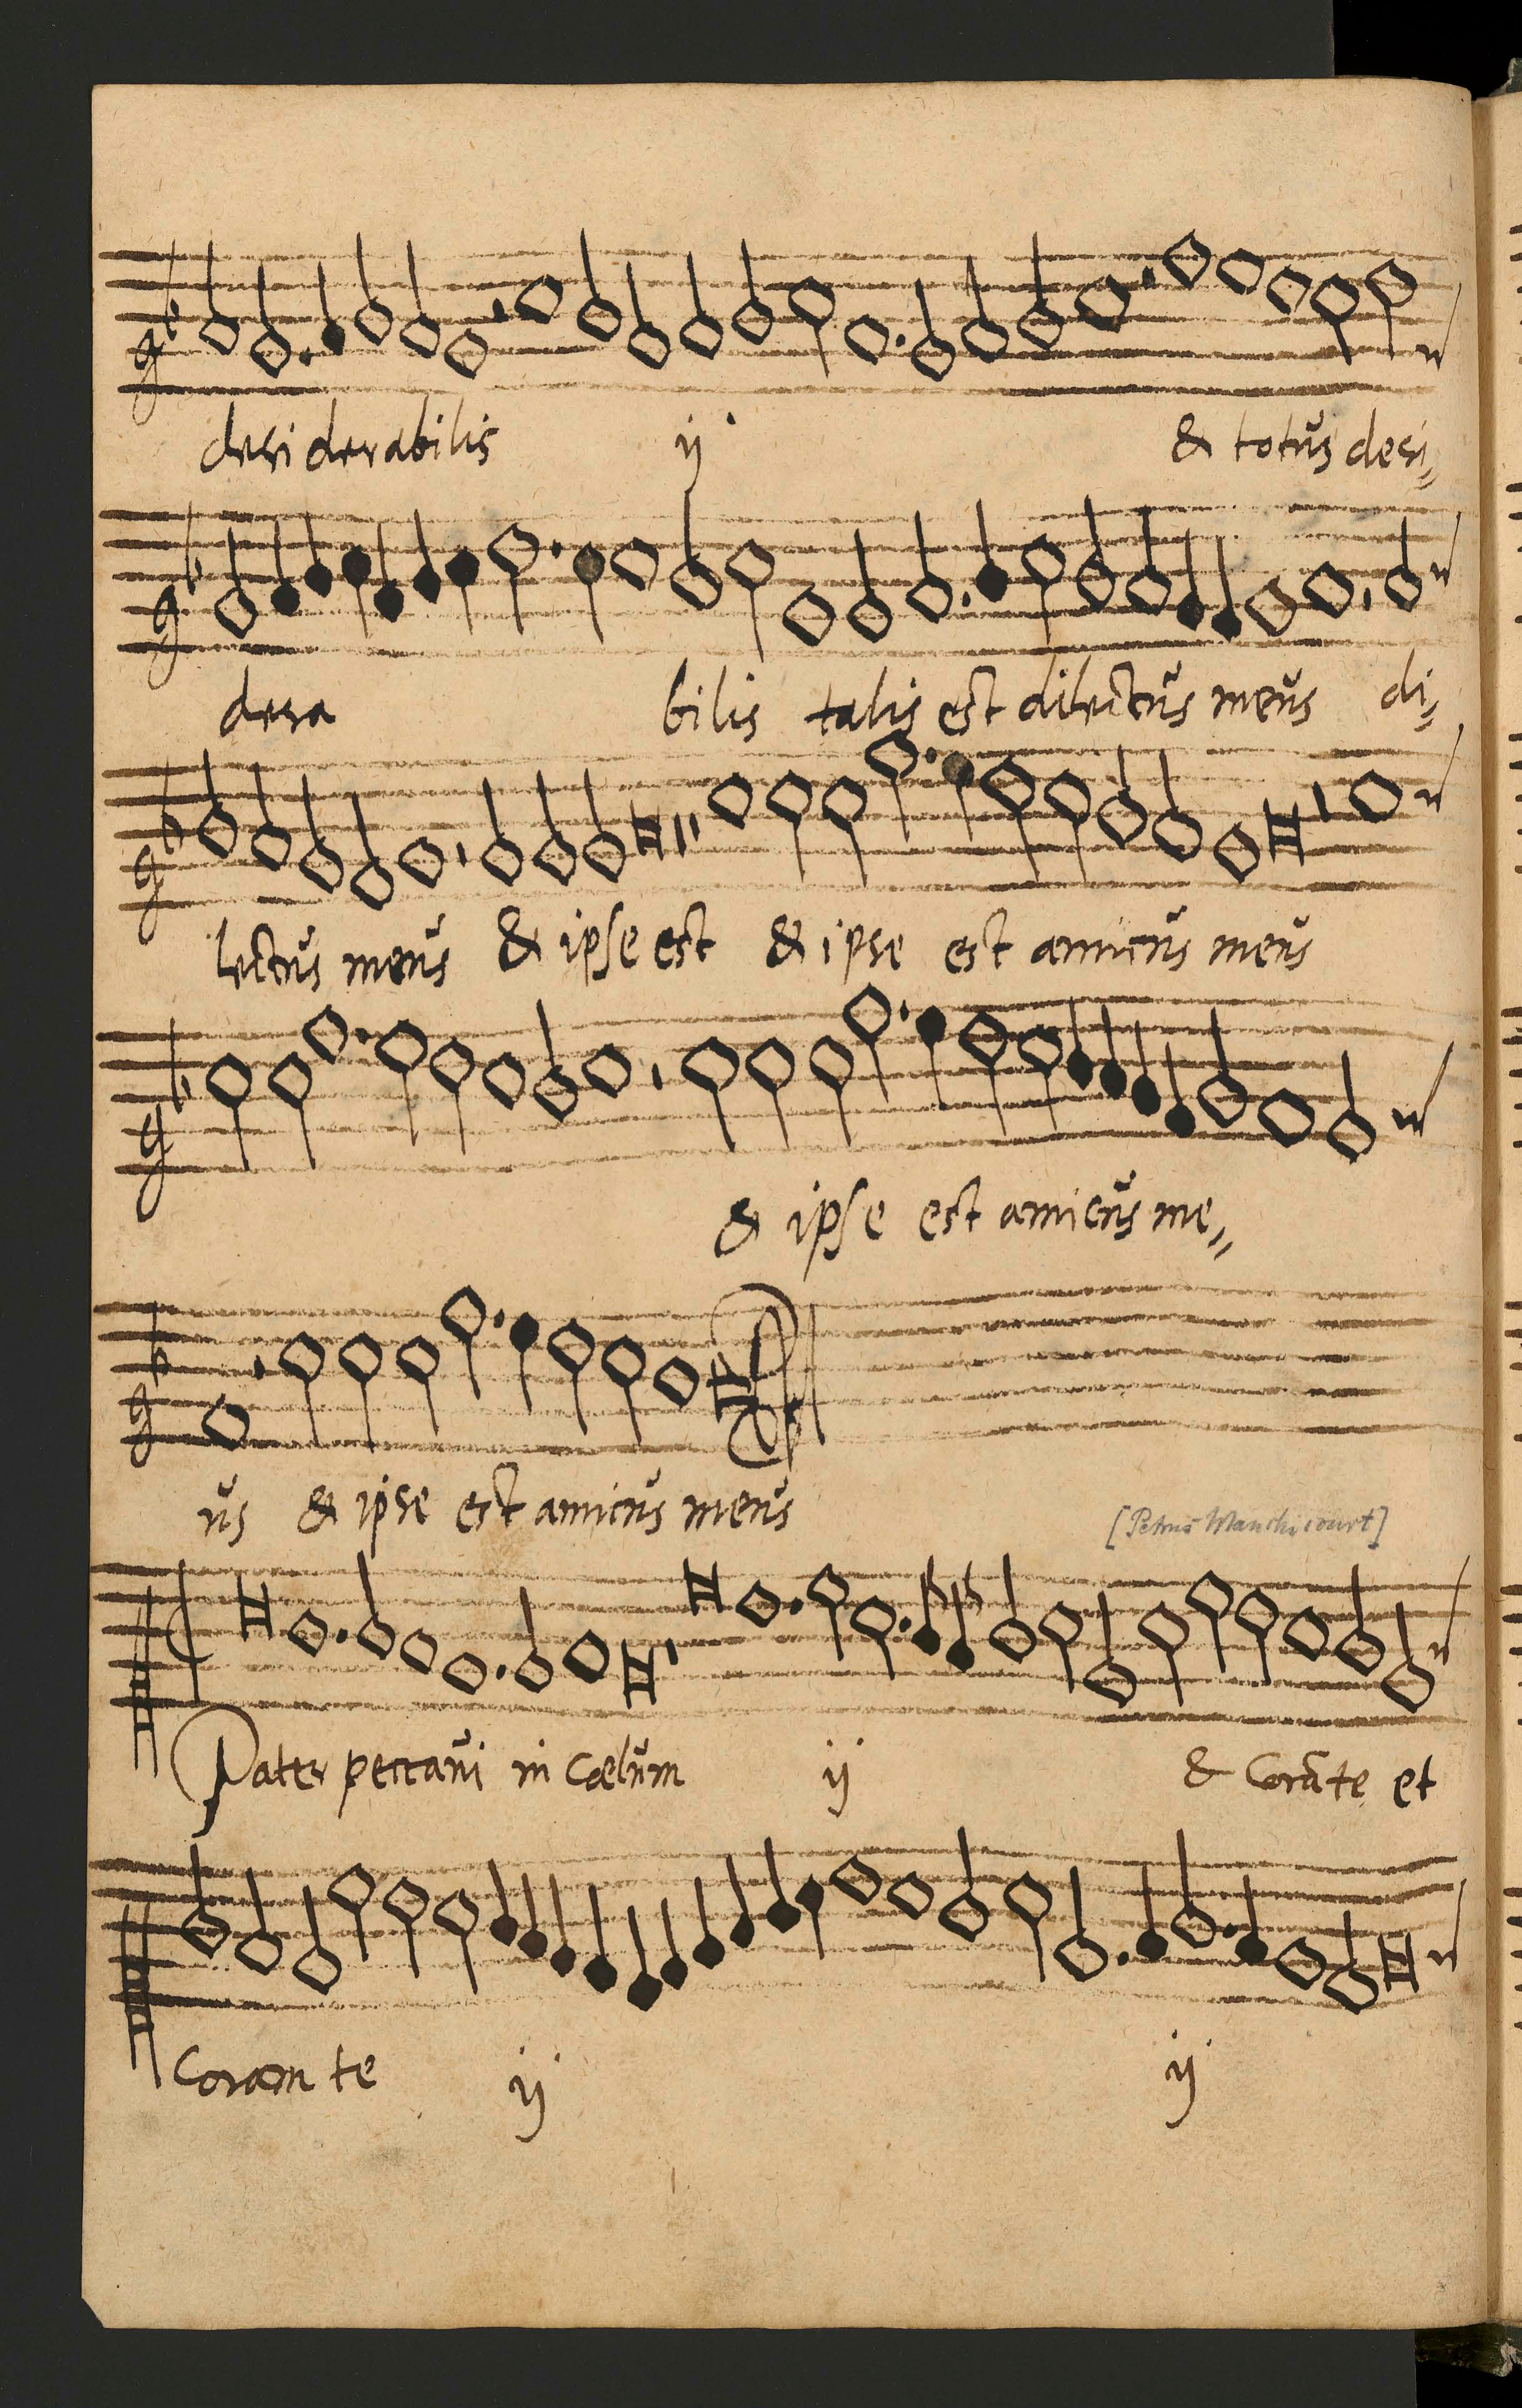 desiderabilis ij & totus desi
dera bilis talis est dilectus meus di
lectus meus & ipse est & ipse est amicus meus
& ipse est amicus me
us & ipse est amicus meus
[Petrus Manchicourt]
Pater peccavi in cœlum ij & corā te et
coram te ij ij